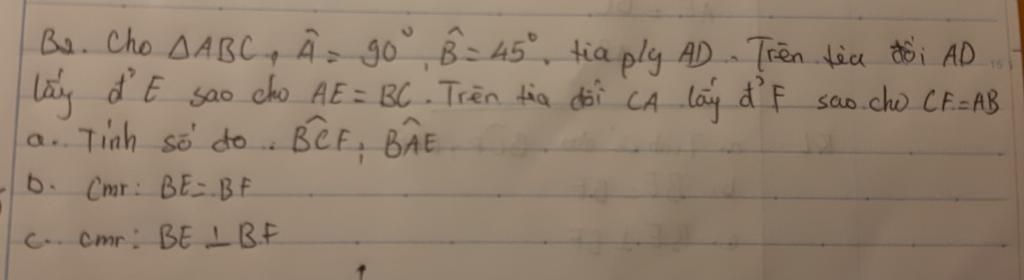 B2. Cho ΔABC, Â = 90°, B̂ = 45°. tia p/g AD. Trên tia đối AD
lấy đ' E sao cho AE = BC. Trên tia đối CA lấy đ' F sao cho CF = AB
a. Tính số đo. B̂CF; B̂AE
b. Cmr: BE = BF
c. cmr: BE ⊥ BF